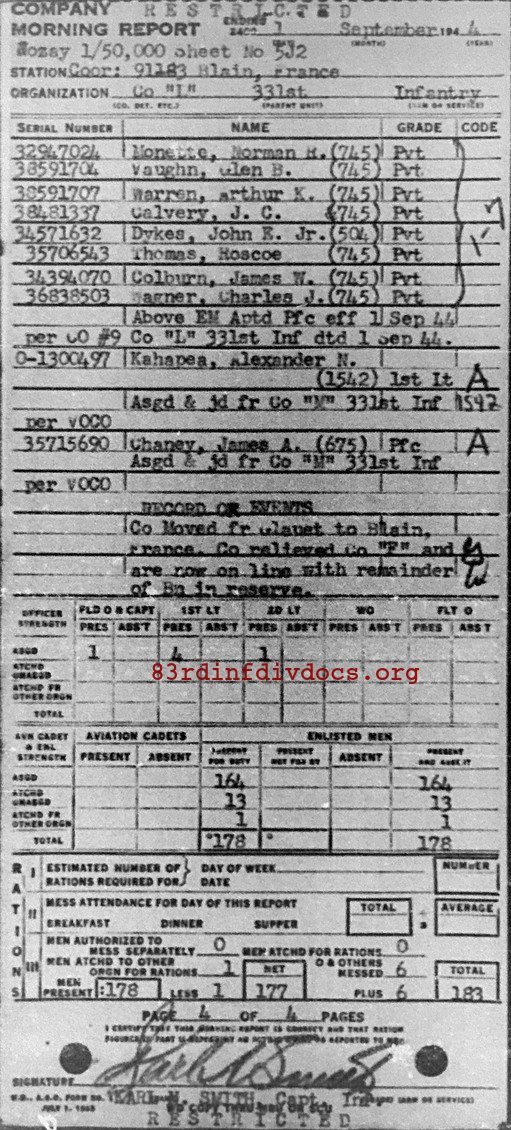 COMPANY RESTRICTED
MORNING REPORT ENDING 2400 1 September 1944
(MONTH) (YEAR)
Nozay 1/50,000 Sheet No 5J2
STATION Coor: 91183 Blain, France
ORGANIZATION Co "L" 331st Infantry
(CO. DET. ETC.) (PARENT UNIT) (ARM OR SERVICE)
SERIAL NUMBER NAME GRADE CODE
32947024 Monette, Norman R. (745) Pvt
38591704 Vaughn, Glen B. (745) Pvt
38591707 Warren, Arthur K. (745) Pvt
38481337 Calvery, J. C. (745) Pvt
34571632 Dykes, John E. Jr. (504) Pvt
35706543 Thomas, Roscoe (745) Pvt
34394070 Colburn, James W. (745) Pvt
36838503 Wagner, Charles J. (745) Pvt
Above EM Aptd Pfc eff 1 Sep 44
per CO #9 Co "L" 331st Inf dtd 1 Sep 44.
O-1300497 Kahapea, Alexander N.
(1542) 1st Lt A
Asgd & jd fr Co "M" 331st Inf 1542
per VOCO
35715690 Chaney, James A. (675) Pfc A
Asgd & jd fr Co "M" 331st Inf
per VOCO
RECORD OR EVENTS
Co Moved fr to Blain,
France. Co relieved Co "F" and
are now on line with remainder
of Bn in reserve.
OFFICER STRENGTH FLD O & CAPT 1ST LT 2D LT WO FLT O
PRES ABS'T PRES ABS'T PRES ABS'T PRES ABS'T PRES ABS'T
ASGD 1 4 1
ATCHD UNASGD
83rdinfdivdocs.org
ATCHD FR OTHER ORGN
TOTAL
AVN CADET & ENL STRENGTH AVIATION CADETS ENLISTED MEN
PRESENT ABSENT PRESENT FOR DUTY PRESENT NOT FOR DY ABSENT PRESENT AND ABSENT
ASGD 164 164
ATCHD UNASGD 13 13
ATCHD FR OTHER ORGN 1 1
TOTAL 178 178
RATIONS
I ESTIMATED NUMBER OF RATIONS REQUIRED FOR DAY OF WEEK DATE NUMBER
II MESS ATTENDANCE FOR DAY OF THIS REPORT TOTAL ÷ 3 AVERAGE
BREAKFAST DINNER SUPPER
III MEN AUTHORIZED TO MESS SEPARATELY 0 MEN ATCHD FOR RATIONS 0
MEN ATCHD TO OTHER ORGN FOR RATIONS 1 NET O & OTHERS MESSED 6 TOTAL
MEN PRESENT 178 LESS 1 177 PLUS 6 183
PAGE 4 OF 4 PAGES
I CERTIFY THAT THIS MORNING REPORT IS CORRECT AND THAT RATION
SIGNATURE Karl M Smith
W.D., A.G.O. FORM NO. KARL M. SMITH, Capt. Inf
JULY 1, 1943
RESTRICTED